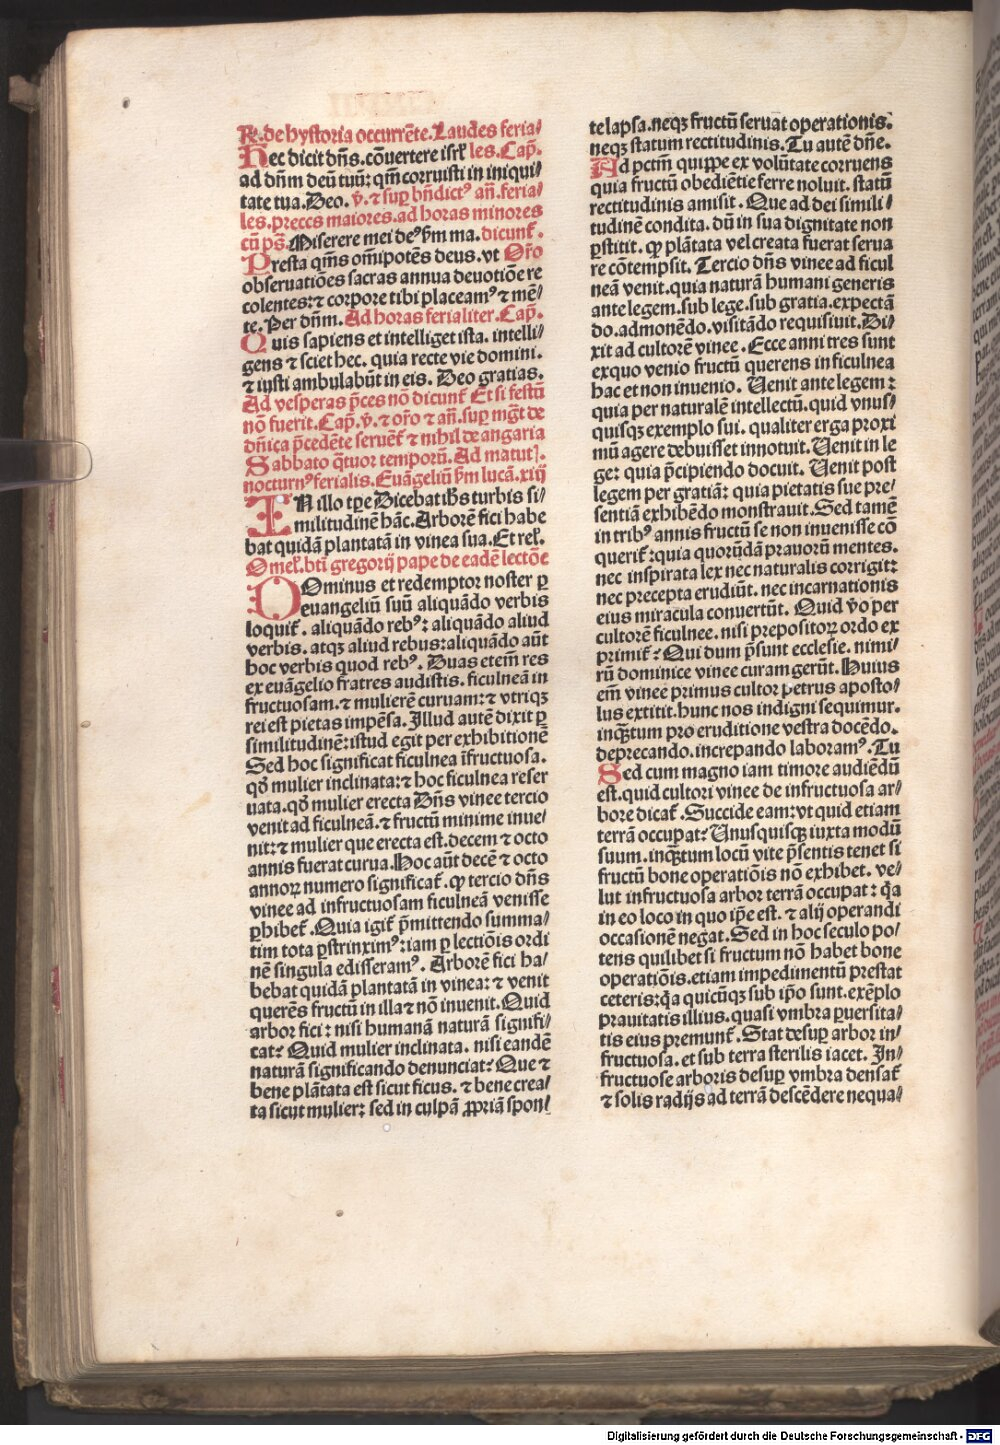 R̃. de hystoria occurrẽte. Laudes feria/
Hec dicit dñs. cõuertere isrł les. Cap̃.
ad dñm deũ tuũ: qm̃ corruisti in iniqui/
tate tua. Deo. v̓. ⁊ sup̱ bñdictꝰ añ. feria/
les. preces maiores. ad horas minores
cũ ps̃. Miserere mei deꝰ ẜm ma. dicunt̃.
Presta qm̃s om̃ipotẽs deus. vt Or̃o
obseruatiões sacras annua deuotiõe re
colentes: ⁊ corpore tibi placeamꝰ ⁊ mẽ/
te. Per dñm. Ad horas ferialiter. Cap̃.
Quis sapiens et intelliget ista. intelli/
gens ⁊ sciet hec. quia recte vie domini.
⁊ iusti ambulabũt in eis. Deo gratias.
Ad vesperas p̃ces nõ dicunt̃ Et si festũ
nõ fuerit. Cap̃. v̓. ⁊ or̃o ⁊ añ. sup̱ mg̃t de
dñica p̃cedẽte seruẽt̃ ⁊ nihil de angaria
Sabbato q̃tuor temporũ. Ad matut̃.
nocturnꝰ ferialis. Euãgeliũ ẜm lucã. xiij
IN illo tp̃e Dicebat ih̃s turbis si/
militudinẽ hãc. Arborẽ fici habe
bat quidã plantatã in vinea sua. Et rel̃.
Omel̃. bt̃i gregorij pape de eadẽ lectõe
DOminus et redemptor noster p̱
euangeliũ suũ aliquãdo verbis
loquit̃. aliquãdo rebꝰ: aliquãdo aliud
verbis. atqꝫ aliud rebus: aliquãdo aũt
hoc verbis quod rebꝰ. Duas etem̃ res
ex euãgelio fratres audistis. ficulneã in
fructuosam. ⁊ mulierẽ curuam: ⁊ vtriqꝫ
rei est pietas impẽsa. Illud autẽ dixit p̱
similitudinẽ: istud egit per exhibitionẽ
Sed hoc significat ficulnea ĩfructuosa.
qd̃ mulier inclinata: ⁊ hoc ficulnea reser
uata. qd̃ mulier erecta Dñs vinee tercio
venit ad ficulneã. ⁊ fructũ minime inue/
nit: ⁊ mulier que erecta est. decem ⁊ octo
annis fuerat curua. Hoc aũt decẽ ⁊ octo
annoꝝ numero significat̃. ꝙ tercio dñs
vinee ad infructuosam ficulneã venisse
p̱hibet̃. Quia igit̃ p̃mittendo summa/
tim tota p̱strinximꝰ: iam p̱ lectiõis ordi
nẽ singula edisseramꝰ. Arborẽ fici ha/
bebat quidã plantatã in vinea: ⁊ venit
querẽs fructũ in illa ⁊ nõ inuenit. Quid
arbor fici: nisi humanã naturã signifi/
cat: Quid mulier inclinata. nisi eandẽ
naturã significando denunciat: Que ⁊
bene plãtata est sicut ficus. ⁊ bene crea/
ta sicut mulier: sed in culpã ꝓpriã spon/
te lapsa. neqꝫ fructũ seruat operationis.
neqꝫ statum rectitudinis. Tu autẽ dñe.
Ad pctm̃ quippe ex volũtate corruens
quia fructũ obediẽtie ferre noluit. statũ
rectitudinis amisit. Que ad dei simili/
tudinẽ condita. dũ in sua dignitate non
p̱stitit. ꝙ plãtata vel creata fuerat serua
re cõtempsit. Tercio dñs vinee ad ficul
neã venit. quia naturã humani generis
ante legem. sub lege. sub gratia. expectã
do. admonẽdo. visitãdo requisiuit. Di/
xit ad cultorẽ vinee. Ecce anni tres sunt
ex quo venio fructũ querens in ficulnea
hac et non inuenio. Venit ante legem:
quia per naturalẽ intellectũ. quid vnus/
quisqꝫ exemplo sui. qualiter erga proxi
mũ agere debuisset innotuit. Venit in le
ge: quia p̃cipiendo docuit. Venit post
legem per gratiã: quia pietatis sue pre/
sentiã exhibẽdo monstrauit. Sed tamẽ
in tribꝰ annis fructũ se non inuenisse cõ
querit̃: quia quorũdã prauorũ mentes.
nec inspirata lex nec naturalis corrigit:
nec precepta erudiũt. nec incarnationis
eius miracula conuertũt. Quid v̓o per
cultorẽ ficulnee. nisi prepositoꝝ ordo ex
primit̃: Qui dum p̃sunt ecclesie. nimi/
rũ dominice vinee curam gerũt. Huius
em̃ vinee primus cultor petrus aposto/
lus extitit. hunc nos indigni sequimur.
inq̃tum pro eruditione vestra docẽdo.
deprecando. increpando laboramꝰ. Tu
Sed cum magno iam timore audiẽdũ
est. quid cultori vinee de infructuosa ar/
bore dicat̃. Succide eam: vt quid etiam
terrã occupat: Unusquisqꝫ iuxta modũ
suum. inq̃tum locũ vite p̃sentis tenet si
fructũ bone operatiõis nõ exhibet. ve/
lut infructuosa arbor terrã occupat: q̃a
in eo loco in quo ip̃e est. ⁊ alij operandi
occasionẽ negat. Sed in hoc seculo po/
tens quilibet si fructum nõ habet bone
operatiõis. etiam impedimentũ prestat
ceteris: q̃a quicũqꝫ sub ip̃o sunt. exẽplo
prauitatis illius. quasi vmbra p̱uersita/
tis eius premunt̃. Stat desup̱ arbor in/
fructuosa. et sub terra sterilis iacet. In/
fructuose arboris desup̱ vmbra densat̃
⁊ solis radijs ad terrã descẽdere nequa/
Digitalisierung gefördert durch die Deutsche Forschungsgemeinschaft - DFG